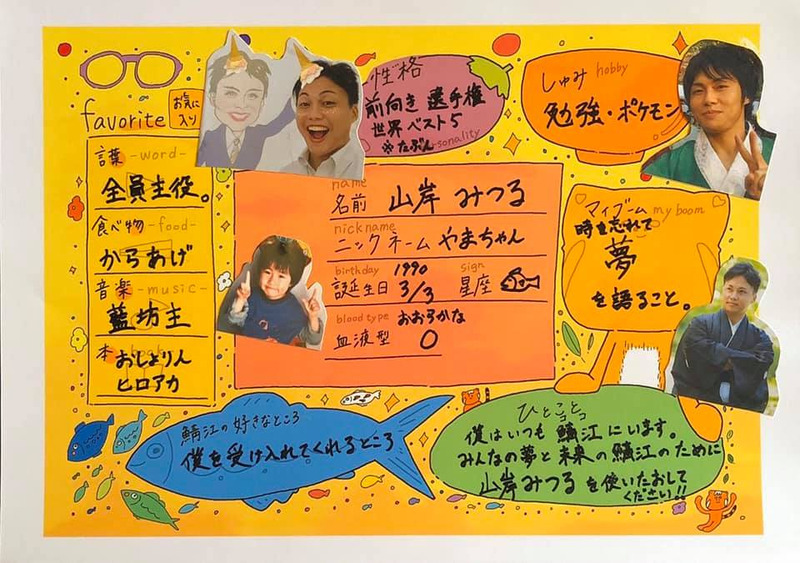 favorite お気に入り
言葉 -word-
全員主役。
食べ物 -food-
からあげ
音楽 -music-
藍坊主
本
おしょりん
ヒロアカ
性格
前向き 選手権
世界ベスト5
※たぶん
sonality
しゅみ hobby
勉強・ポケモン
name
名前 山岸 みつる
nickname
ニックネーム やまちゃん
birthday 1990
誕生日 3/3
sign
星座
blood type おおらかな
血液型 O
マイブーム my boom
時を忘れて
夢
を語ること。
鯖江の好きなところ
僕を受け入れてくれるところ
ひとこと
僕はいつも鯖江にいます。
みんなの夢と未来の鯖江のために
山岸みつるを使いたおして
ください!!